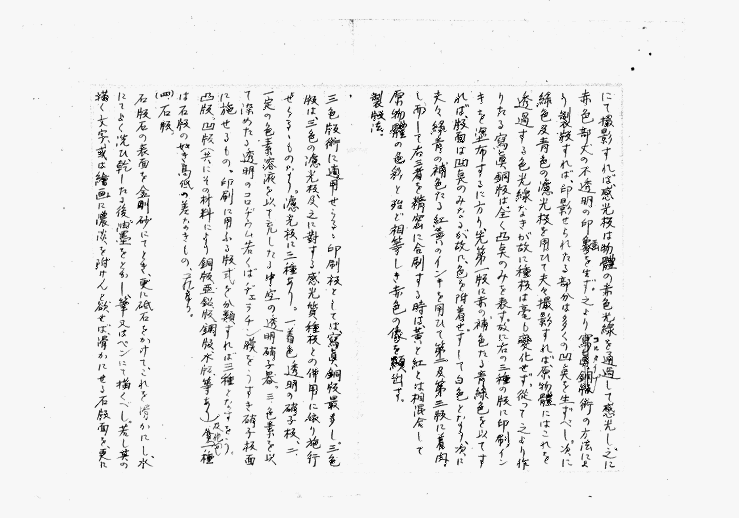 にて撮影すれば感光板は物體の赤色光線を通過して感光し、之に
赤色部丈の不透明の印象を生ず。之より寫眞銅版術の方法によ
り製版すれば、印影せられたる部分は多くの凹点を生ずべし。次に
綠色及青色の濾光板を用ひて夫々撮影すれば原物體にはこれを
透過する色光線なきが故に種板は毫も變化せず。從て之より作
りたる寫眞銅版は全く凸点のみを表す。故に右の三種版に印刷イン
キを塗布するに方り、先第一版に赤の補色たる青綠色を以てす
れば版面は凹点のみなるが故に、色を附着せずして白色となり、次に
夫々綠青の補色たる紅黄のインキを用ひて第二及第三版に着肉
し而して右三者を精密に合刷する時は黄と紅とは相混合して
原物體の色彩と殆ど相等しき赤色の像を顯出す。
製版法。
三色版術に適用せらるゝ印刷板としては寫眞銅版最多し。三色
版は三色の濾光板及之に對する感光質種板との併用に依り施行
せらるゝものなり。濾光板に三種あり。一、着色透明の硝子板、二、
一定の色素溶液を以て充したる中空の透明硝子器、三、色素を以
て染めたる透明のコロヂウム若くはヂェラチン膜をうすき硝子板面
に施せるもの。印刷に用ふる版式を分類すれば三種となすをう。
凸版、凹版(共にその材料により銅版亞鉛版鋼版木版等あり)及他の一種
は石版の如き高低の差なきもの、これなり。
(四)石版
石版石の表面を金剛砂にてとぎ、更に砥石をかけてこれを滑かにし、水
にてよく洗ひ乾したる後油墨をとかし、筆又はペンにて描くべし。若し其の
描く文字、或は繪画に濃淡を附けんと欲せば滑かにせる石版面を、更に